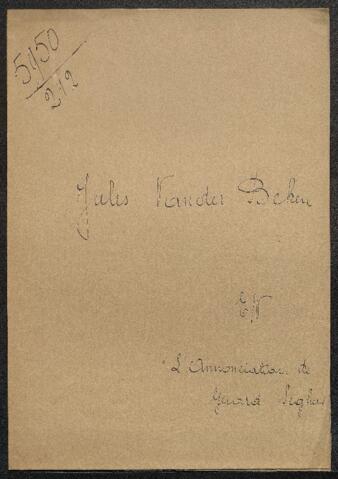 5150
212
Jules Vander Beken
EV
"L'Annonciation de
Gerard Seghers